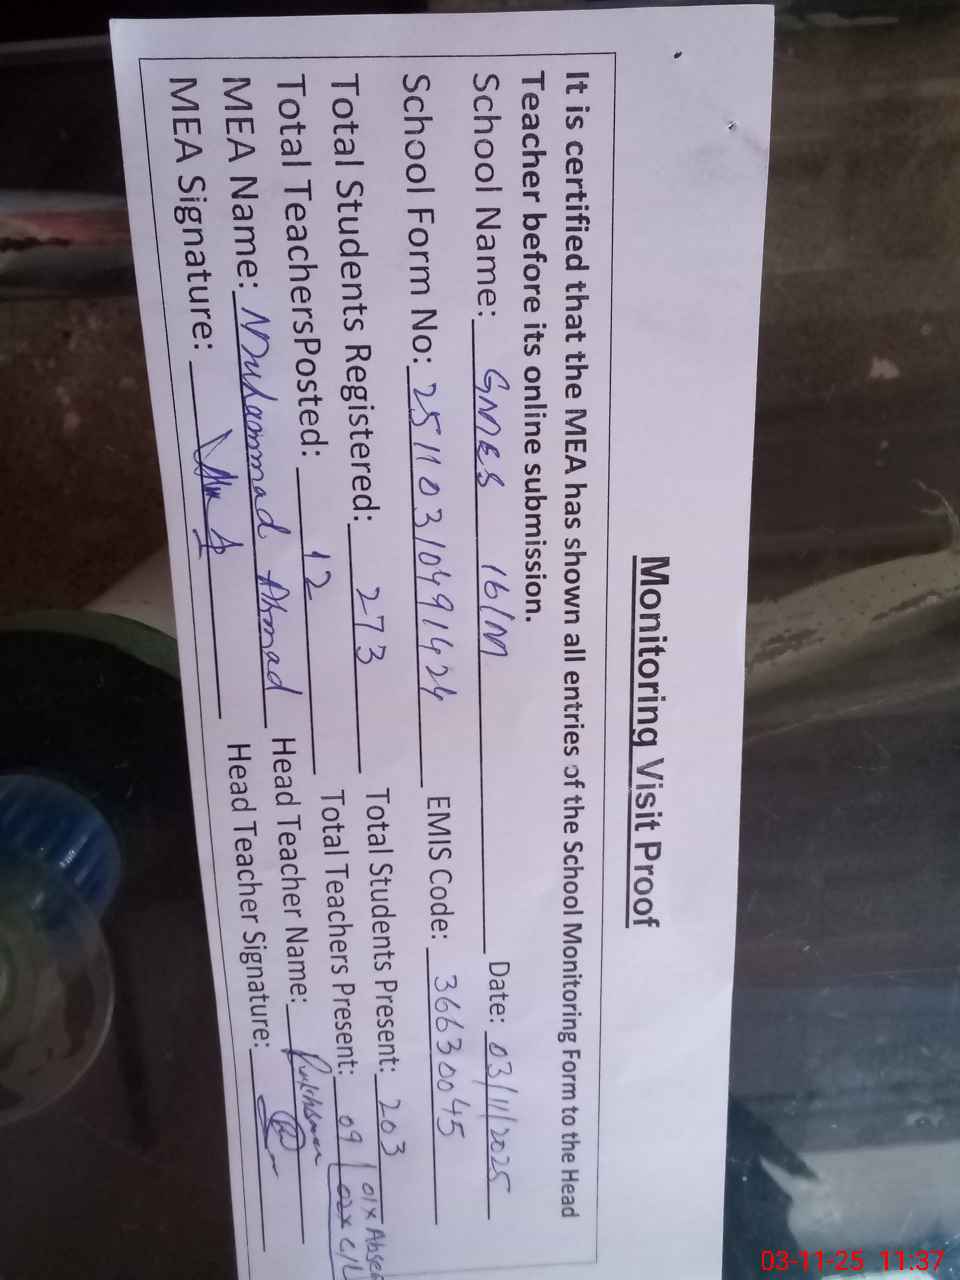 Monitoring Visit Proof
It is certified that the MEA has shown all entries of the School Monitoring Form to the Head
Teacher before its online submission.
School Name: GMES 16/M Date: 03/11/2025
School Form No: 2511031049 1424 EMIS Code: 36630045
Total Students Registered: 273 Total Students Present: 203
Total TeachersPosted: 12 Total Teachers Present: 09 01x Abse 02x C/L
MEA Name: Muhammad Ahmad Head Teacher Name:
MEA Signature: Head Teacher Signature:
03-11-25 11:37